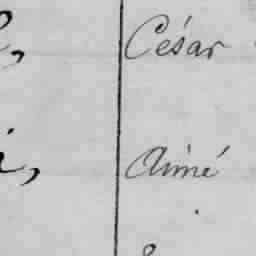 César
Aimé